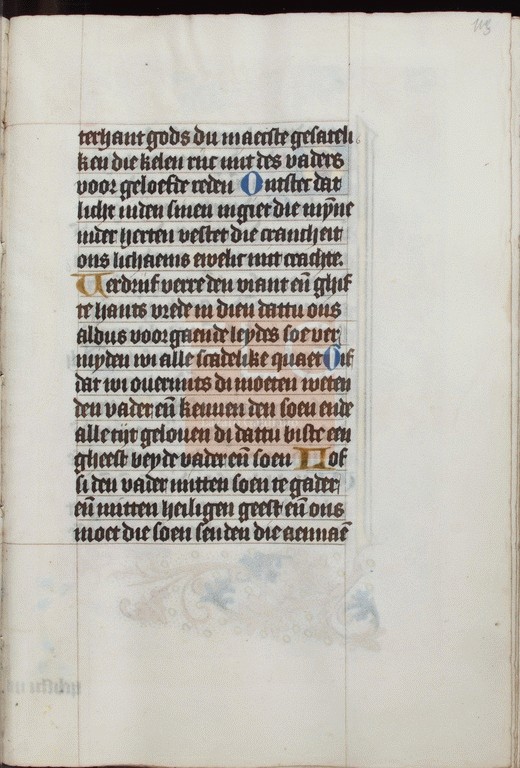 113
terhant gods du maecste gesateli
ken die kelen ruc mit des vaders
voor geloefte reden Ontstec dat
licht inden sinnen ingiet die mÿnne
inder herten vestet die crancheit
ons lichaems ewelic mit crachte.
Verdrijf verre den viant eñ ghif
te hants vrede in dien dattu ons
aldus voorgaende leydes soe ver
myden wi alle scadelike quaet Gif
dat wi ouermits di moeten weten
den vader eñ kennen den soen ende
alle tijt gelouen di dattu biste een
gheest beyde vader eñ soen Lof
si den vader mitten soen te gader
eñ mitten heiligen geest eñ ons
moet die soen senden die aennaē